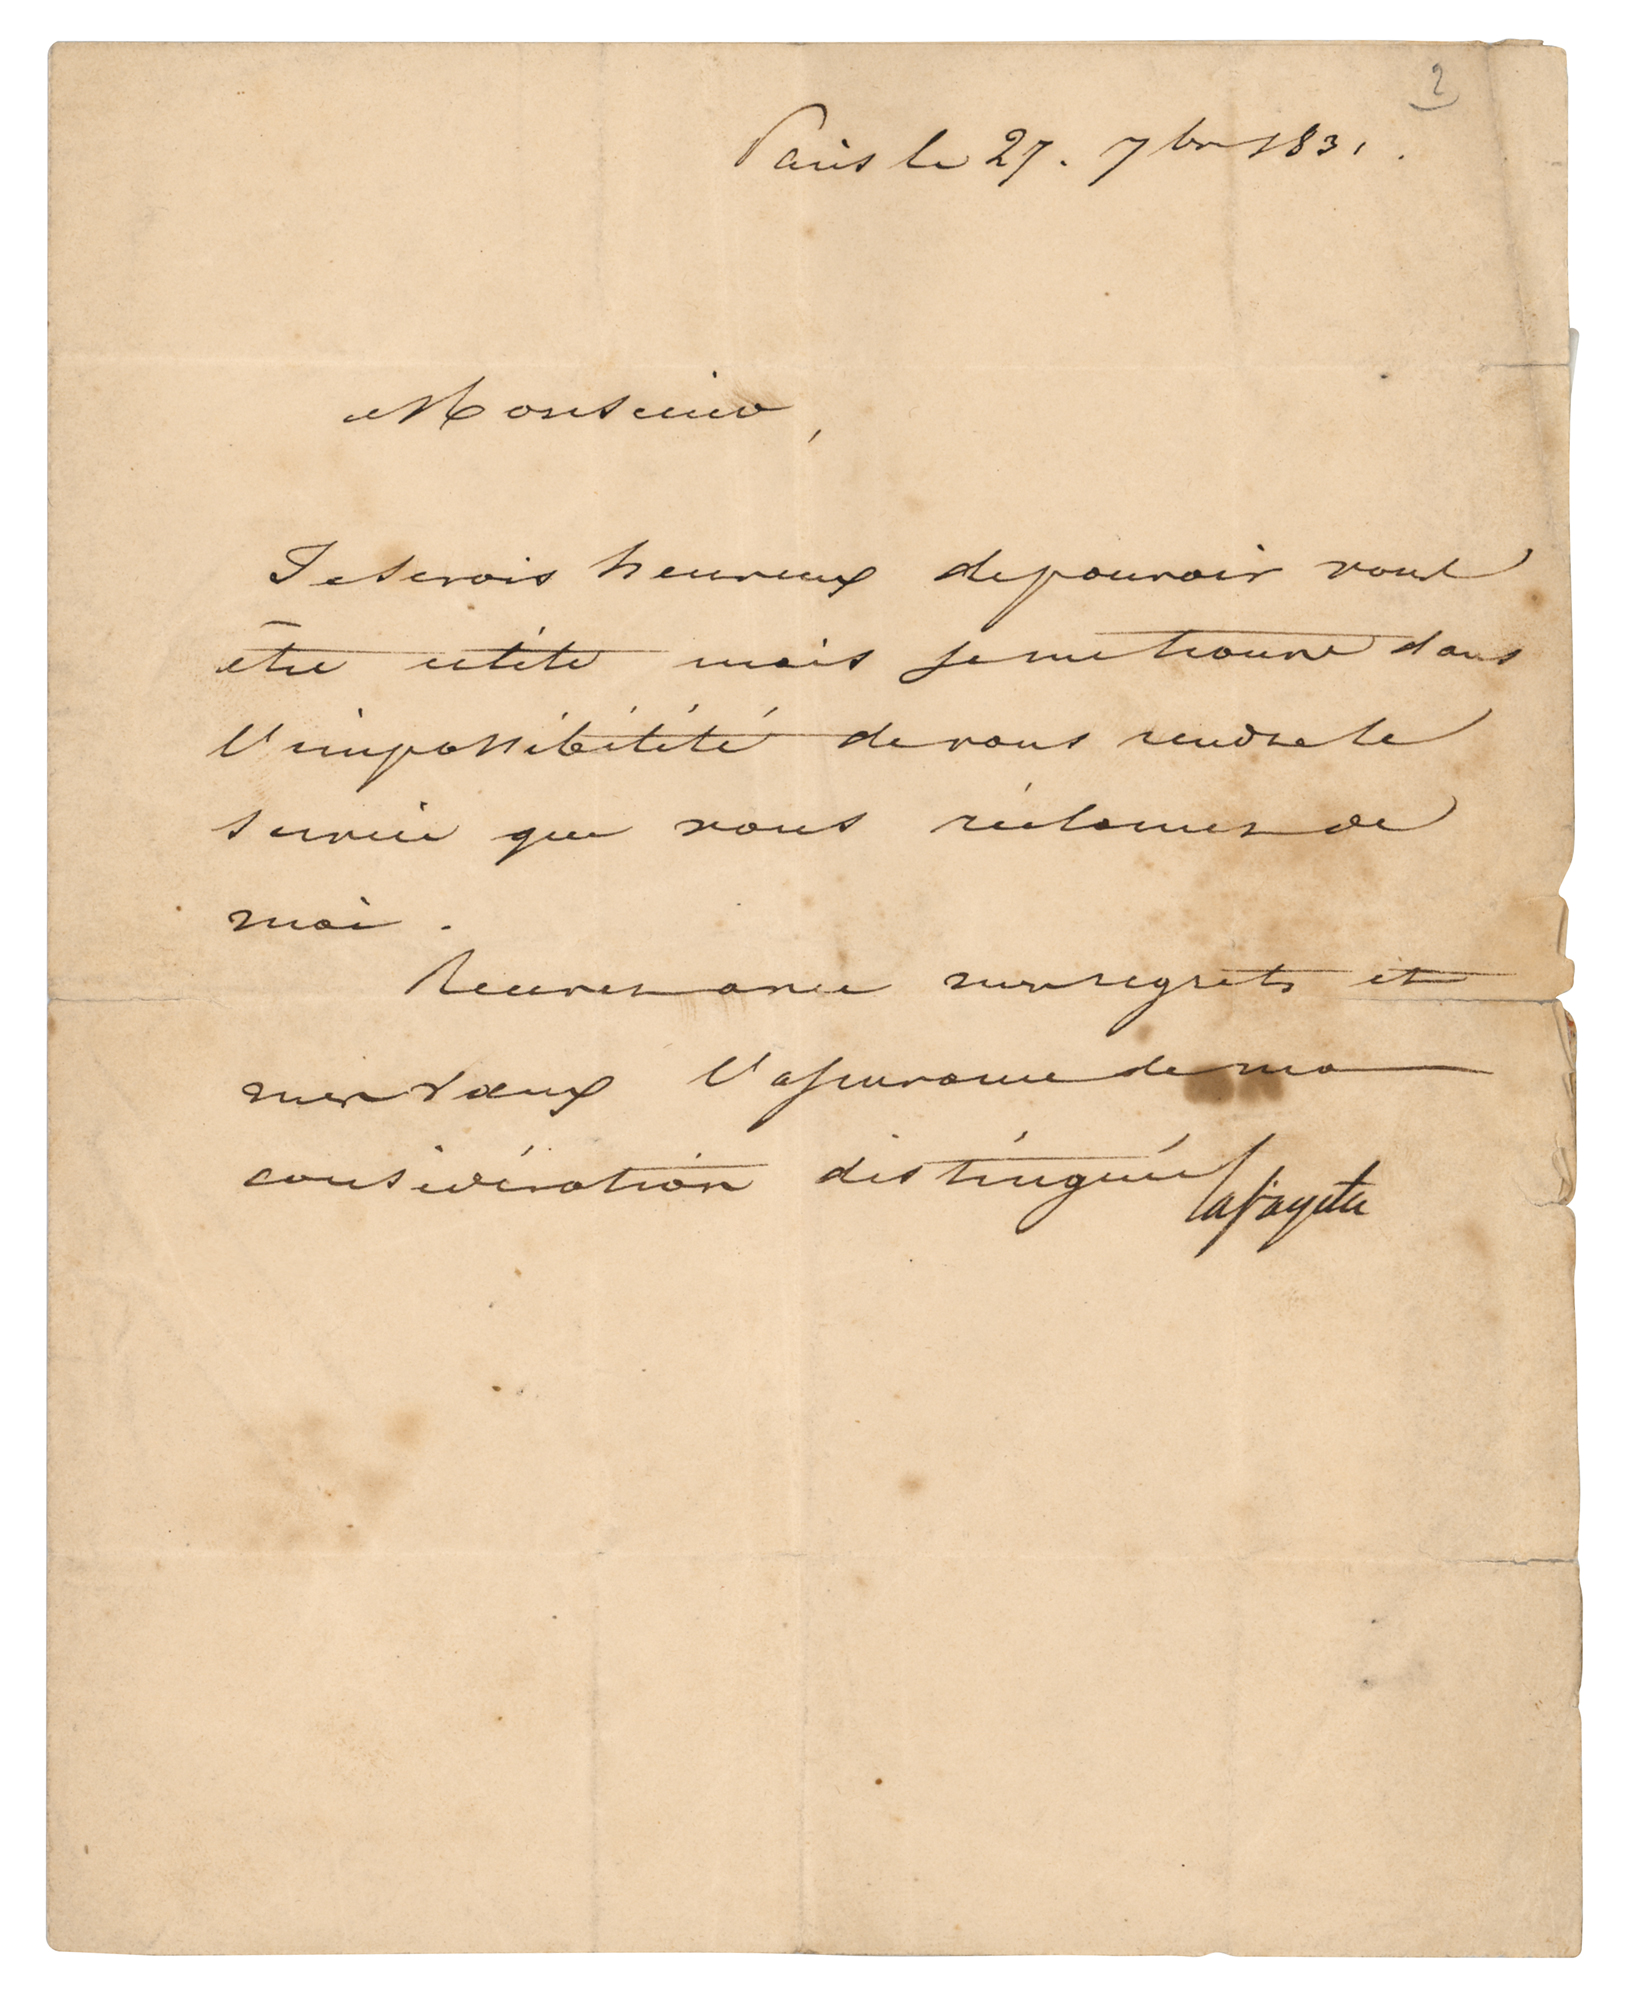 2
Paris le 27. 7bre 1831.
Monsieur,
Je serois heureux de pouvoir vous
être utile mais je me trouve dans
l'impossibilité de vous rendre le
service que vous réclamez de
moi.
Recevez avec mes regrets et
mes vœux l'assurance de ma
considération distinguée
Lafayette